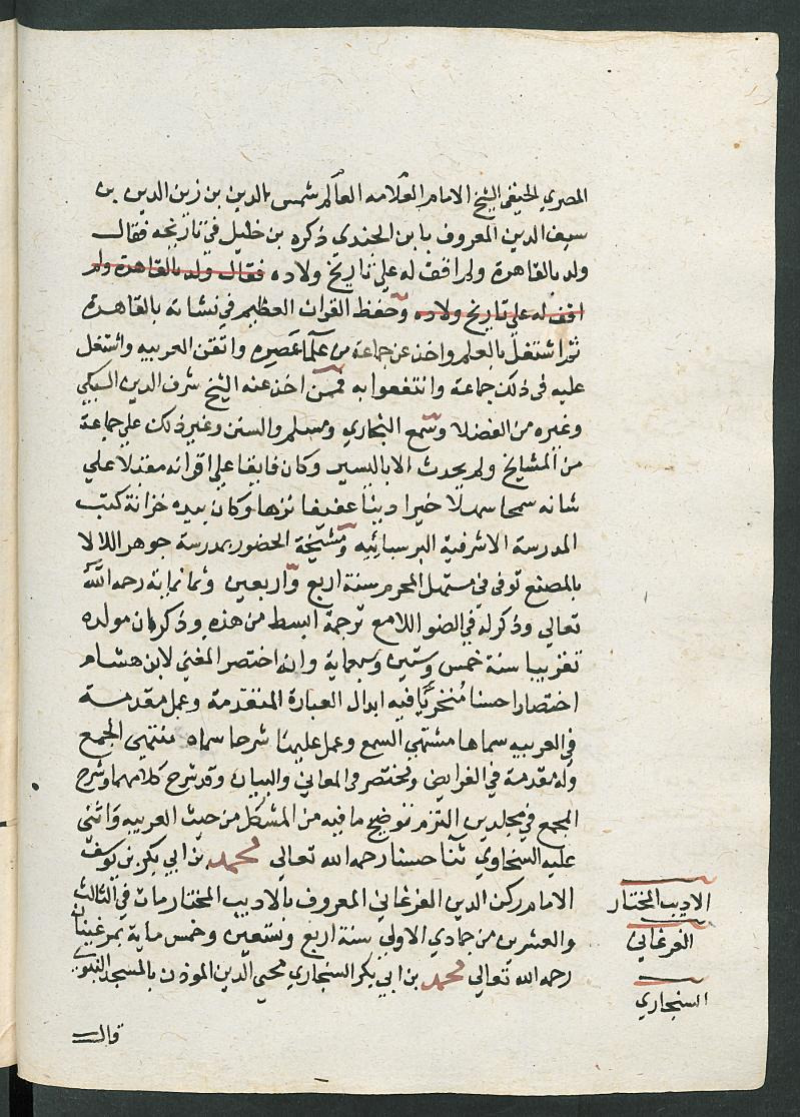 المصري الحنفي الشيخ الامام العلامه العالم شمس الدين بن زين الدين بن
سيف الدين المعروف بابن الجندى ذكره بن خليل في تاريخه فقال
ولد بالقاهرة ولم اقف له على تاريخ ولاده فقال ولد بالقاهرة ولم
اقف له على تاريخ ولاده وحفظ القران العظيم في نشاته بالقاهرة
ثم اشتغل بالعلم واخذ عن جماعة من علما عصره واتقن العربيه واشتغل
عليه في ذلك جماعة وانتفعوا به فممن اخذ عنه الشيخ شرف الدين السبكي
وغيره من الفضلا وسمع البخاري ومسلم والسنن وغير ذلك علي جماعة
من المشايخ ولم يحدث الا باليسير وكان فايقا علي اقرانه مقبلا علي
شانه سمحا سهلا خيرا دينا عفيفا نزها وكان بيده خزانة كتب
المدرسة الاشرفية البرسبائيه ومشيخة الحضور بمدرسة جوهر اللالا
بالمصنع توفى في مستهل المحرم سنة اربع واربعين وثمانماية رحمه الله
تعالي وذكر له في الضو اللامع ترجمة ابسط من هذه وذكر ان مولده
تقريبا سنة خمس وستين وسبعماية وانه اختصر المغني لابن هشام
اختصارا حسنا متحريا فيه ابدال العبارة المنتقدمة وعمل مقدمة
في العربيه سماها مشتهى السمع وعمل عليها شرحا سماه منتهى الجمع
وله مقدمة في الفرايض ومختصر في المعاني والبيان وقد شرح كلا منهما وشرح
المجمع في مجلدين التزم توضيح ما فيه من المشكل من حيث العربيه واثنى
عليه السخاوي ثنا حسنا رحمه الله تعالي محمد بن ابي بكر بن يوسف
الامام ركن الدين الفرغاني المعروف بالاديب المختار مات في الثالث
والعشرين من جمادي الاولى سنة اربع وتسعين وخمس ماية بمرغينان
رحمه الله تعالي محمد بن ابي بكر السنجاري محيي الدين الموذن بالمسجد النبوي
الاديب المختار
الفرغاني
السنجاري
قال